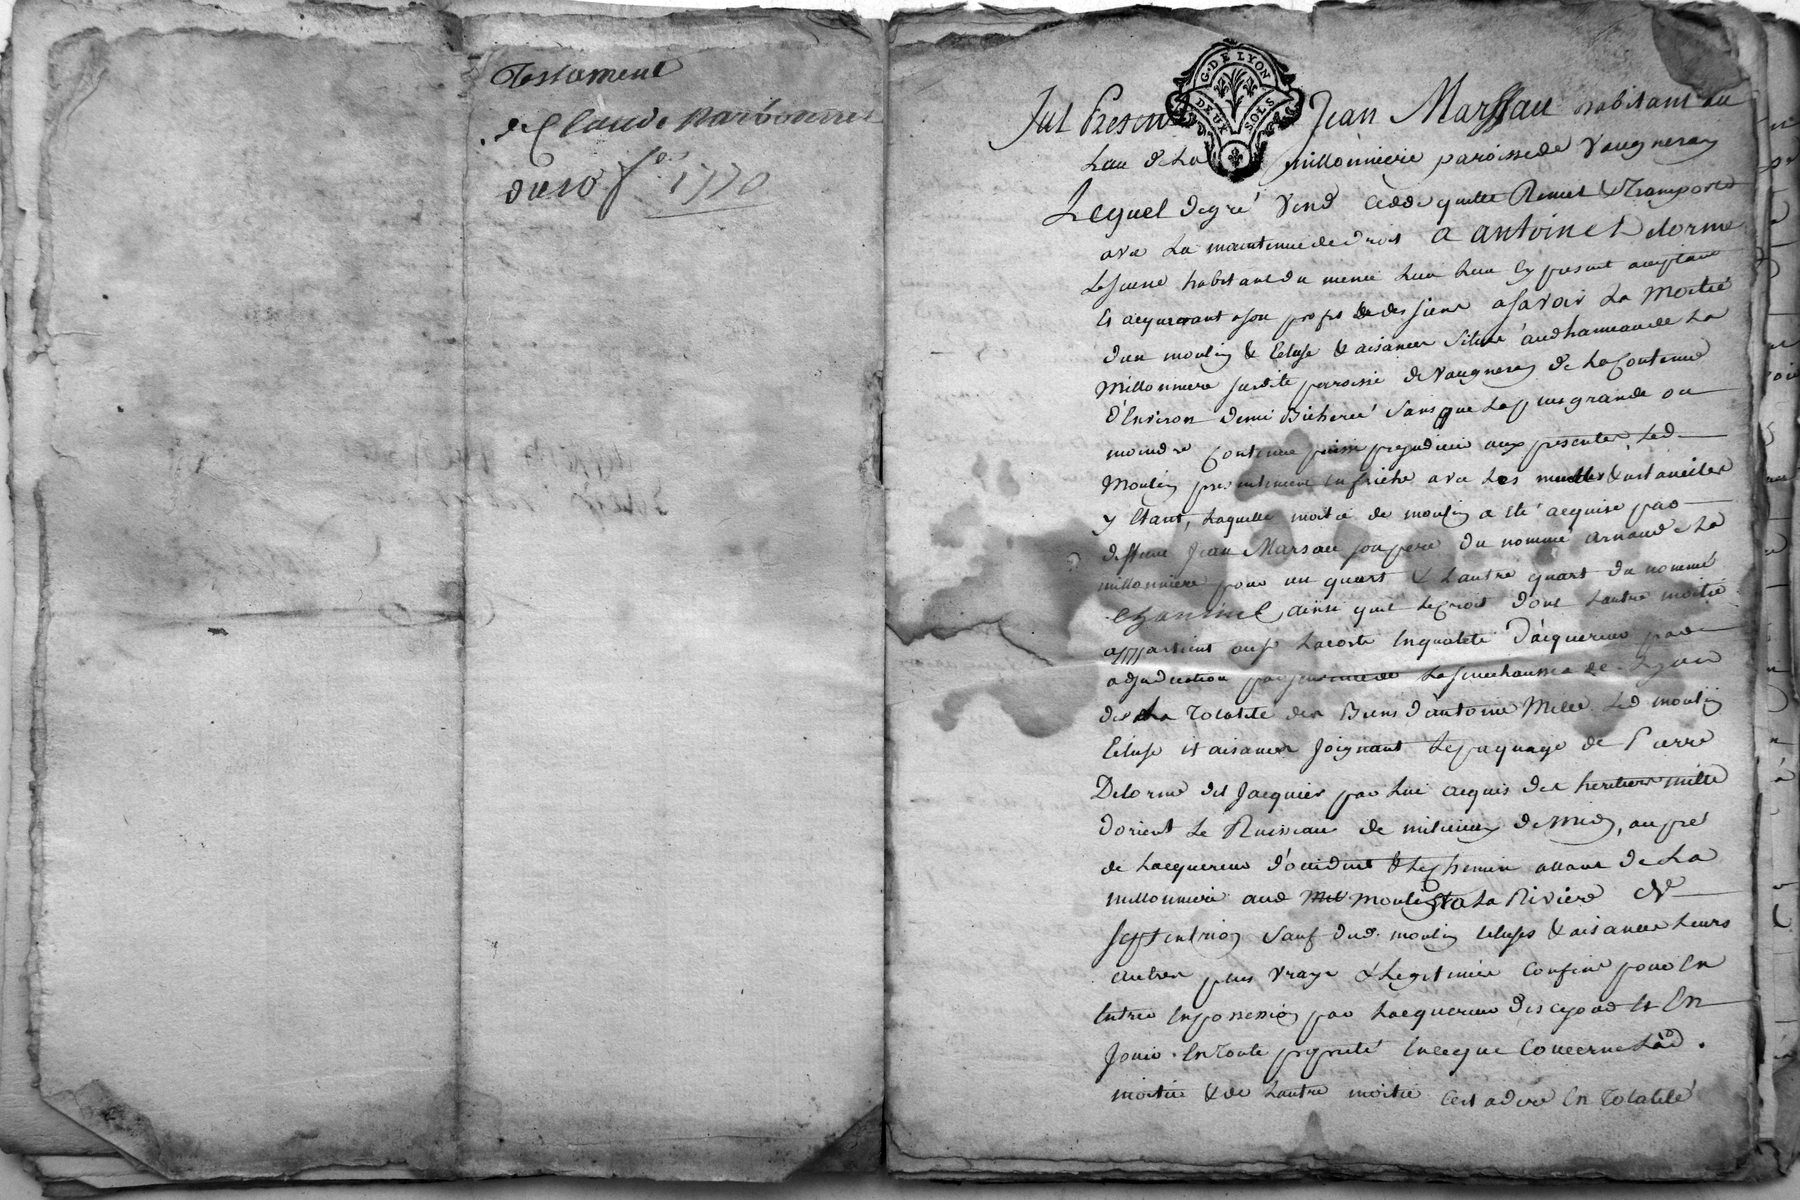 Testament
de Claude Narbonnet
du 10 1770
G. DE LYON
DEUX SOLS
Fut Present Jean Marssau habitant au
Lieu de La millonniere paroisse de Vaugneray
Lequel de gré vend cedde quitte Remet & Transporte
ave La maintenue de droit a antoine delorme
Le Jeune habitant du meme Lieu Ley present acceptant
Et acquerant a son profit de des siens a savoir La Moitié
d'un moulin & Ecluse & aisances Situé aud hameau de La
Millonniere susdite paroisse de Vaugneray de La Contenue
d'Environ demi Bicherée sans que La plus grande ou
moindre Contenue puisse prejudicier aux presentes, Led
Moulin presentement En friche ave Les meubles & ustancilles
y Etant, Laquelle moitié de moulin a eté acquise par
deffunt Jean Marsau son pere du nommé arnaud de La
millonniere pour un quart & Lautre quart du nommé
ainsi quil Le Croit dont Lautre moitié
appartient au Sr Lacoste En qualité d'acquereur par
adjudication La Senechaussée de Lyon
de La Totalité des Biens d'antoine Mille Led moulin
Ecluse et aisances Joignant Le paquage de Pierre
Delorme dit Jacquier par Lui acquis des heritiers mille
d'orient Le Ruisseau de midi, au pré
de Lacquereur d'occident & Le Chemin allant de La
millonniere aud moulin & a La Riviere de
septentrion sauf dud. moulin Ecluses & aisances Leurs
autres plus vrays & Legitimes Confins pour En
Entrer En possession par Lacquereur dès ce jourd et En
Jouir En Toute proprieté En ce que Concerne Lad.
moitié & de Lautre moitié Cest a dire En Totalité